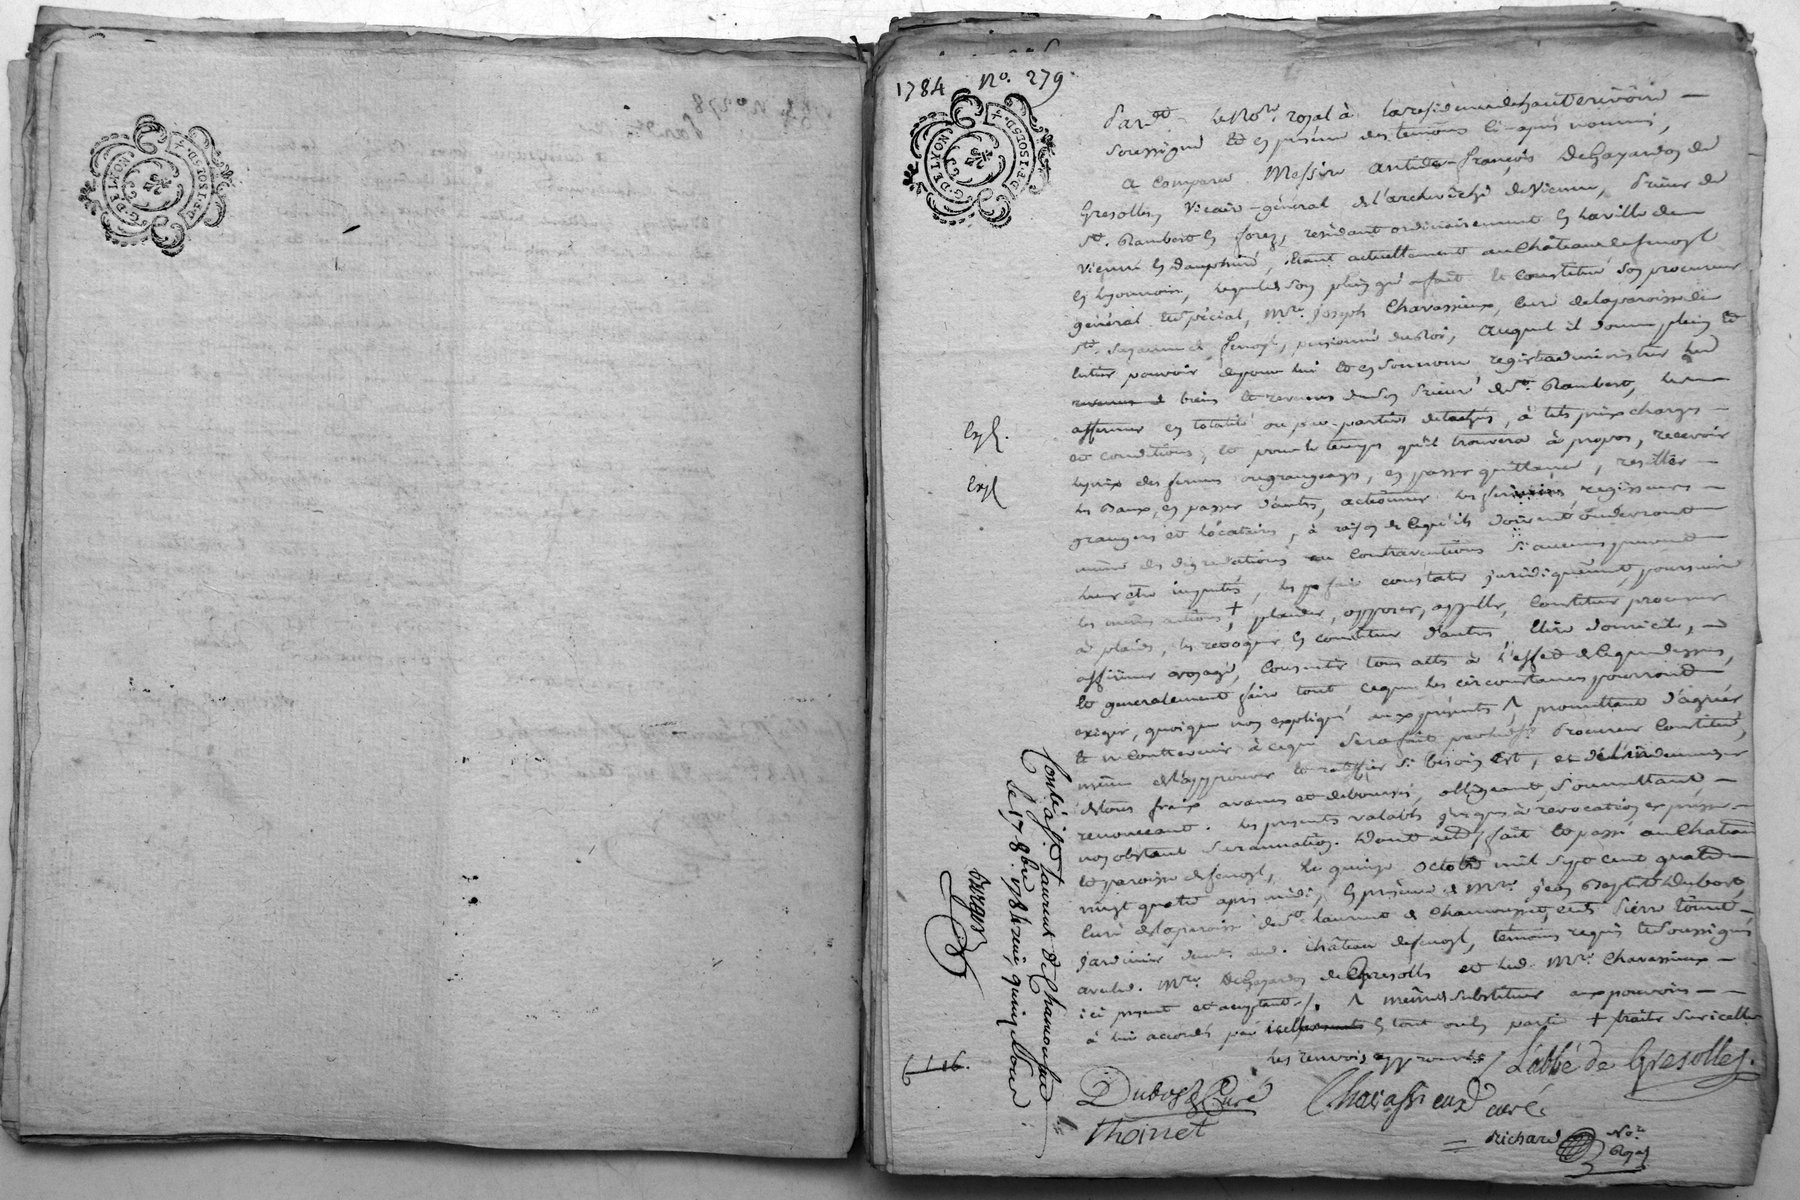 1784 No. 279
G. DE LYON
2 SOLS 1 D. P. F.
G. DE LYON
2 SOLS 1 D. P. F.
Pardt. le Nore. royal à la residence de hauterivoire
soussigné Et en présence des temoins ci-après nommés,
a comparu Messire antide-françois DeGayardon de
Gresolles, Vicaire-général de l'archevêché de Vienne, Prieur de
St. Rambert en forez, residant ordinairement en la ville de
Vienne en Dauphiné, étant actuellement au Château de fenoyl
en lyonnois, lequel de son plein gré a fait et constitué son procureur
général et spécial, Mre. Joseph Chavassieux, Curé de la paroisse de
Ste. foy, pensionné du Roi, auquel il donne plein Et
entier pouvoir de pour lui Et en son nom regir et administrer les
revenus d biens Et revenus de son Prieuré de St. Rambert, les
affermer en totalité ou par parties detachées, à tels prix charges
et conditions, Et pour le temps qu'il trouvera à propos, recevoir
le prix des fermes ou grangeages, en passer quittance, resilier
les Baux, en passer d'autres, actionner les fermiers, regisseurs
grangers et locataires, à raison de ce qu'ils doivent ou devront
même des degradations ou contraventions si aucunes peuvent
leur être imputés, les faire constater juridiquement, poursuivre
les mêmes actions + plaider, opposer, appeller, Constituer procureur
ad plaids, les revoquer en constituer d'autres, Elire domicile,
affirmer voyage, Consentir tous actes à l'effet de ce que dessus,
Et generalement faire tout ce que les circonstances pourront
exiger, quoique non expliqué aux présentes, promettant d'agréer
Et ne contrevenir à ce qui sera fait par led. sr. Procureur Constitué,
même de l'approuver Et ratiffier si besoin est, et de l'indemniser
de tous fraix avances et deboursés, obligeant, soumettant
renonçant. les présentes valables jusques à revocation expresse
nonobstant surannation. Dont acte, fait Et passé au Château
Et paroisse de fenoyl, le quinze octobre mil sept cent quatre
vingt quatre après midi, en présence de Mre. Jean Baptiste Dubost,
Curé de la paroisse de St. laurent de Chamousset, et de Pierre Thoinet
jardinier aud. Château de fenoyl, temoins requis Et soussignés
avec led. Mre. DeGayardon de Gresolles et led. Mre. Chavassieux
ici présent et acceptant /. même substituer aux pouvoirs
à lui accordés par icelles en tout ou en partie + traiter sur icelles
les renvois approuvés / L'abbé de Gresolles.
Dubost Curé Chavassieux curé
Thoinet
Richard Nore. Royal
Expl.
Expl
Conlé à St. Laurent de Chamousset
le 17. 8bre. 1784 reçu quinze sous